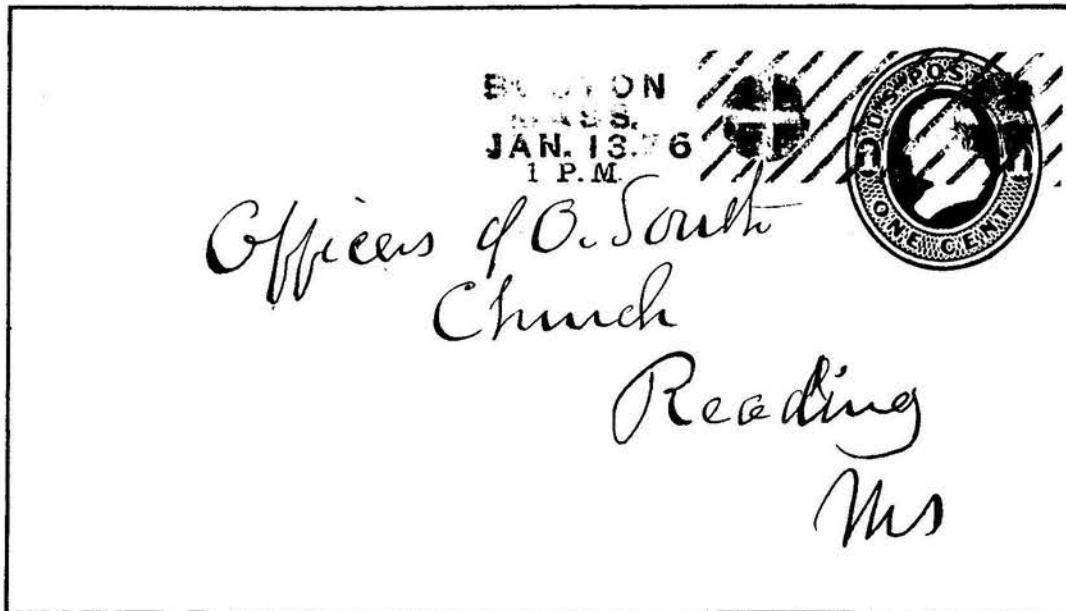 BOSTON
MASS.
JAN. 13. 76
1 P.M.
U.S. POS
1 1
ONE CENT
Officers of O. South
Church
Reading
Ms